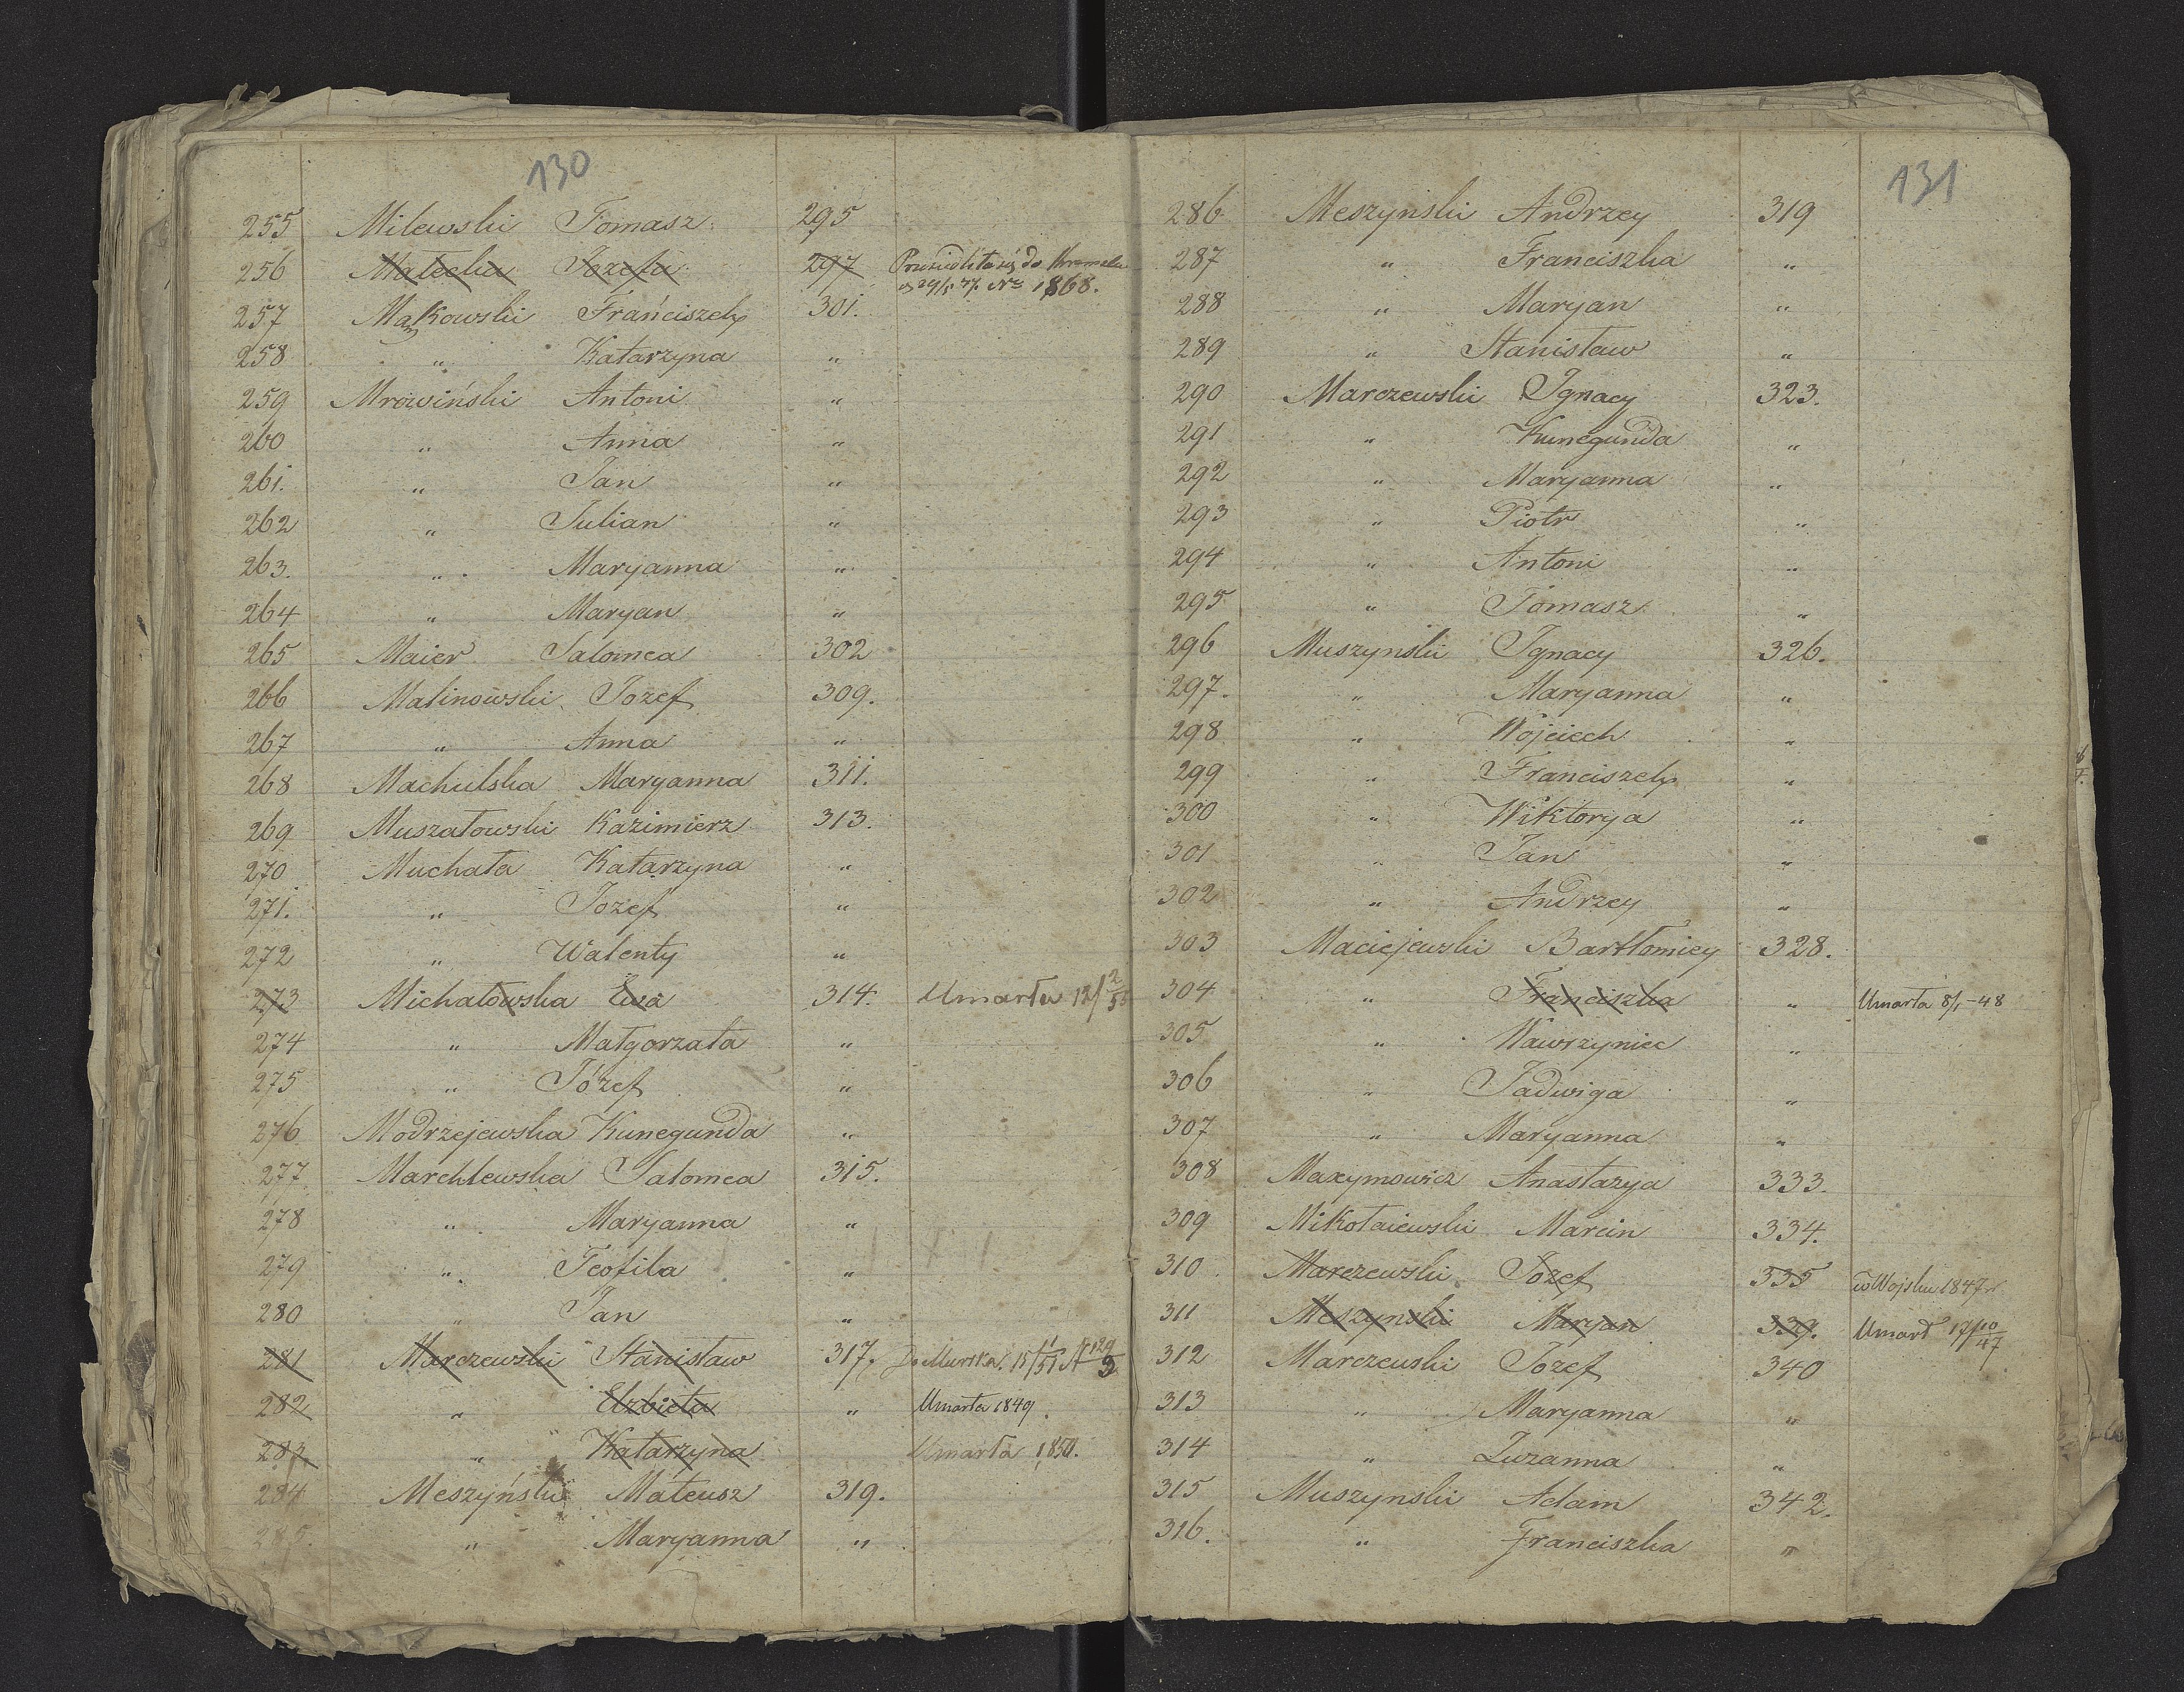 130
255 Milewski Tomasz 295
256 Małecka Jozefa 297 Przesiedliła się do
1868.
257 Mąkowski Franciszek 301.
258 " Katarzyna "
259 Mrowiński Antoni "
260 " Anna "
261. " Jan "
262 " Julian "
263. " Maryanna "
264 " Maryan "
265 Maier Salomea 302
266 Malinowski Jozef 309.
267 " Anna "
268 Machulska Maryanna 311.
269 Muszałowski Kazimierz 313.
270 Muchała Katarzyna "
271. " Jozef "
272 " Walenty "
273 Michałowska Ewa 314. Umarła 12/2
274 " Małgorzata "
275 " Józef "
276 Modrzejewska Kunegunda "
277 Marchlewska Salomea 315.
278 " Maryanna "
279 " Teofila "
280 " Jan "
281 Marczewski Stanisław 317.
282 " Elzbieta " Umarła 1849.
283. " Katarzyna Umarła 1850.
284 Meszyński Mateusz 319.
285. " Maryanna "
131
286 Meszynski Andrzey 319
287 " Franciszka "
288 " Maryan "
289 " Stanisław "
290 Marczewski Ignacy 323.
291 " Kunegunda "
292 " Maryanna "
293 " Piotr "
294 " Antoni "
295 " Tomasz "
296 Muszynski Ignacy 326.
297. " Maryanna "
298 " Wojciech "
299 " Franciszek "
300 " Wiktorya "
301 " Jan "
302 " Andrzey "
303 Maciejewski Bartłomiey 328.
304 " Franciszka " Umarła 8/1-48
305 " Wawrzyniec "
306 " Jadwiga "
307 " Maryanna "
308 Maxymowicz Anastazya 333.
309 Mikołaiewski Marcin 334.
310. Marczewski Jozef 335 w Wojsku 1847 r
311 Meszynski Maryan 339. Umarł 17/10 47
312 Marczewski Jozef 340
313 " Maryanna "
314 " Zuzanna "
315 Muszynski Adam 342.
316. " Franciszka "